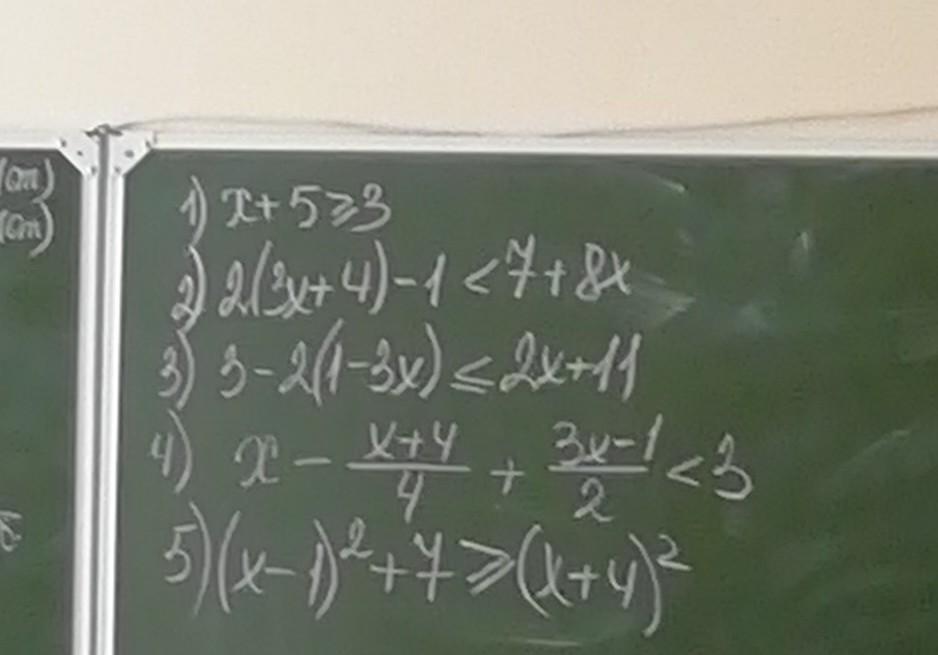 (am)
(am)
1) x+5≥3
2) 2(3x+4)-1<7+8x
3) 3-2(1-3x)≤2x+11
4) x - \frac{x+4}{4} + \frac{3x-1}{2} < 3
5) (x-1)²+7≥(x+4)²